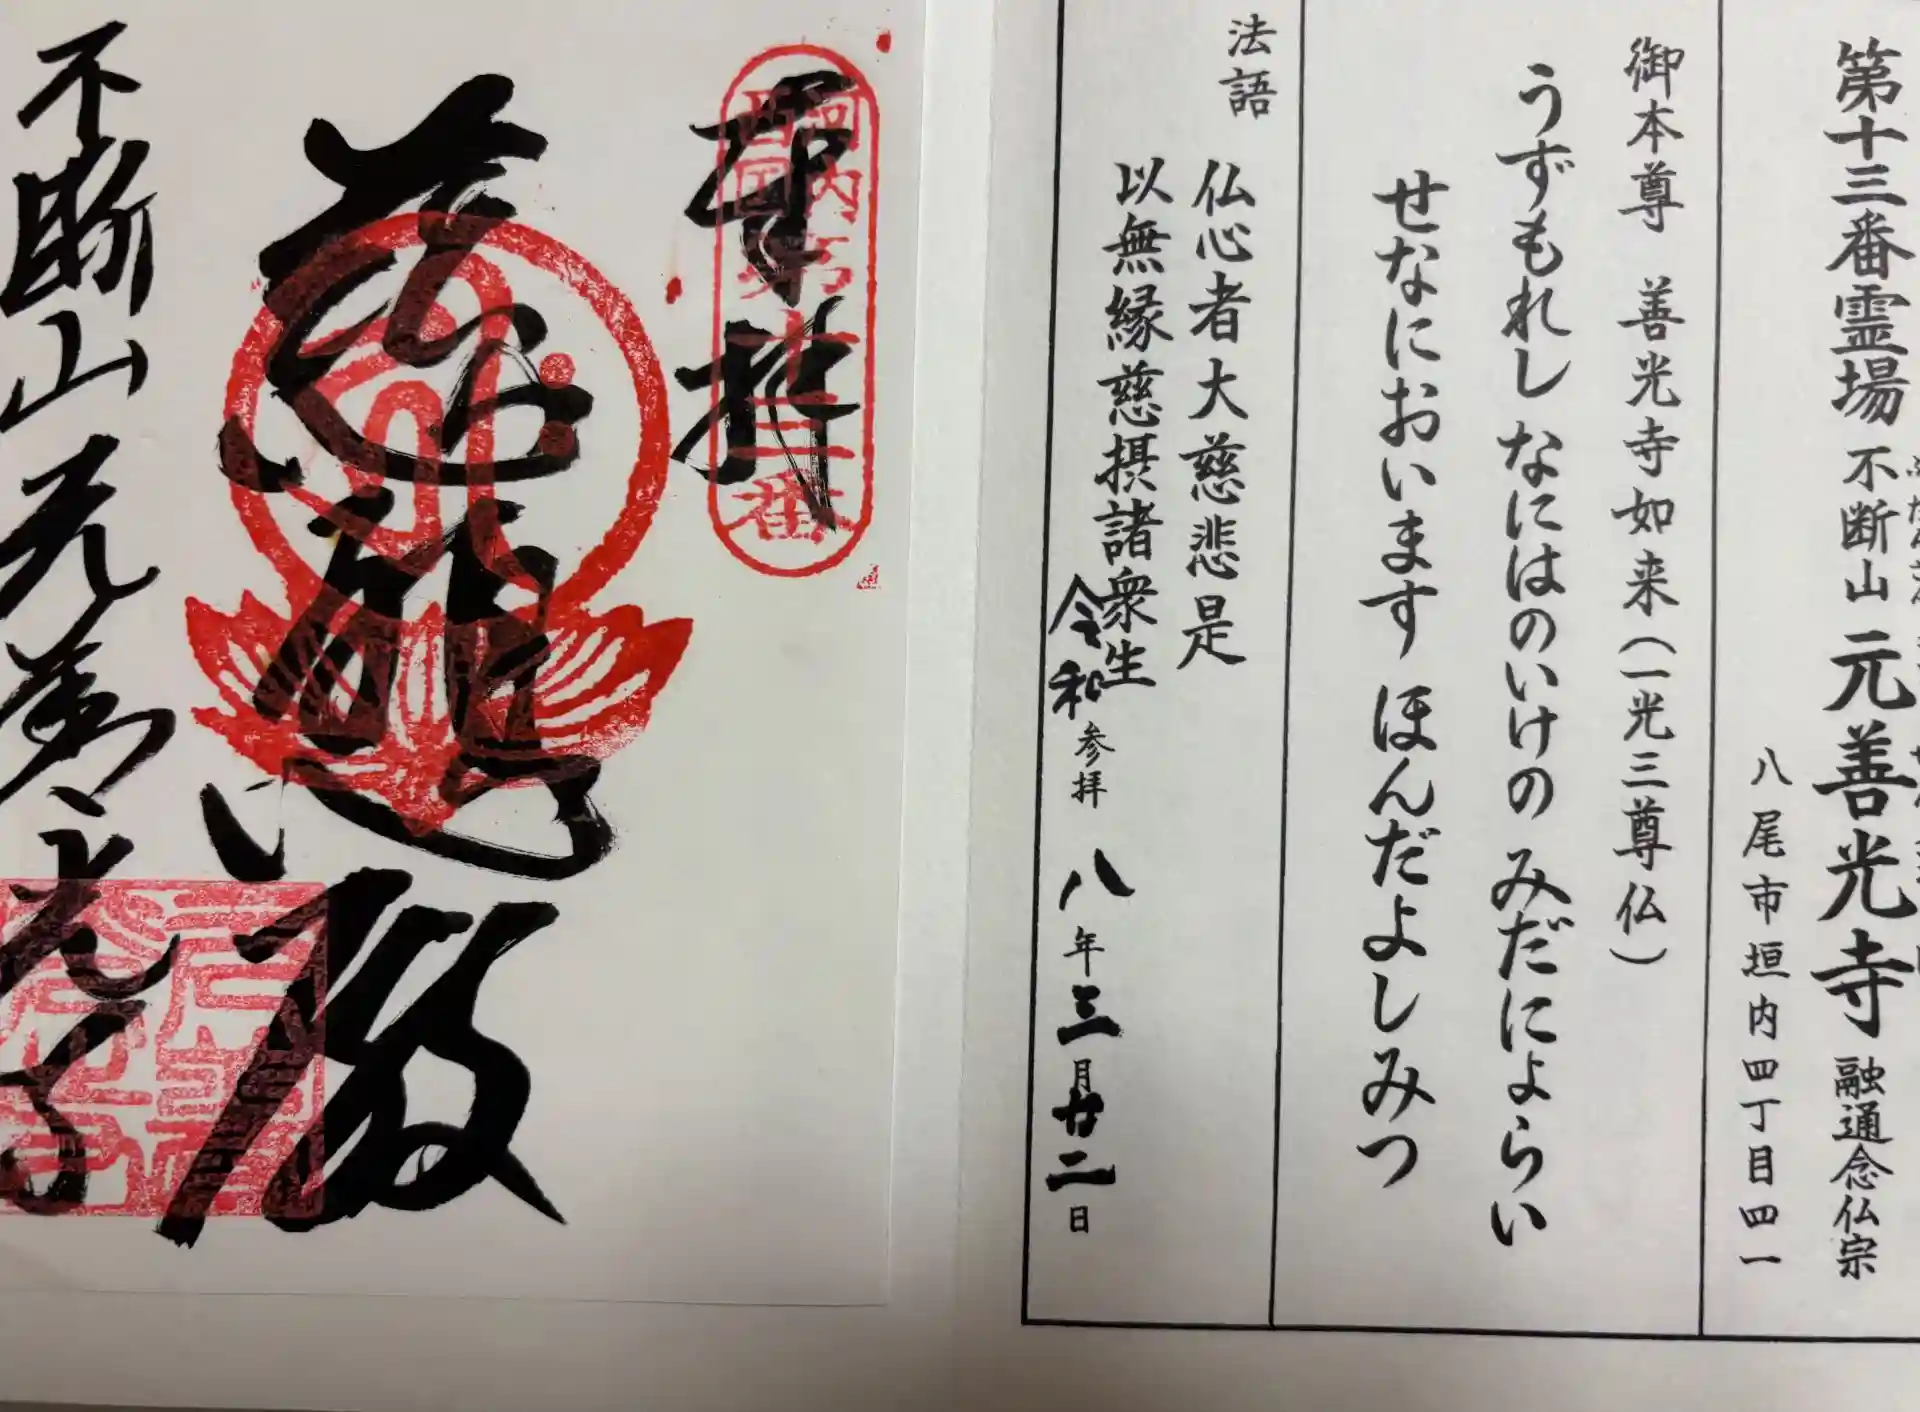 第十三番霊場 不断山 元善光寺 融通念仏宗
八尾市垣内四丁目四一
御本尊 善光寺如来(一光三尊仏)
うずもれし なにはのいけの みだにょらい
せなにおいます ほんだよしみつ
法語
仏心者大慈悲是
以無縁慈摂諸衆生
令和 参拝 八年三月廿二日
奉拝
河内西国第十三番
慈悲殿
不断山 元善光寺